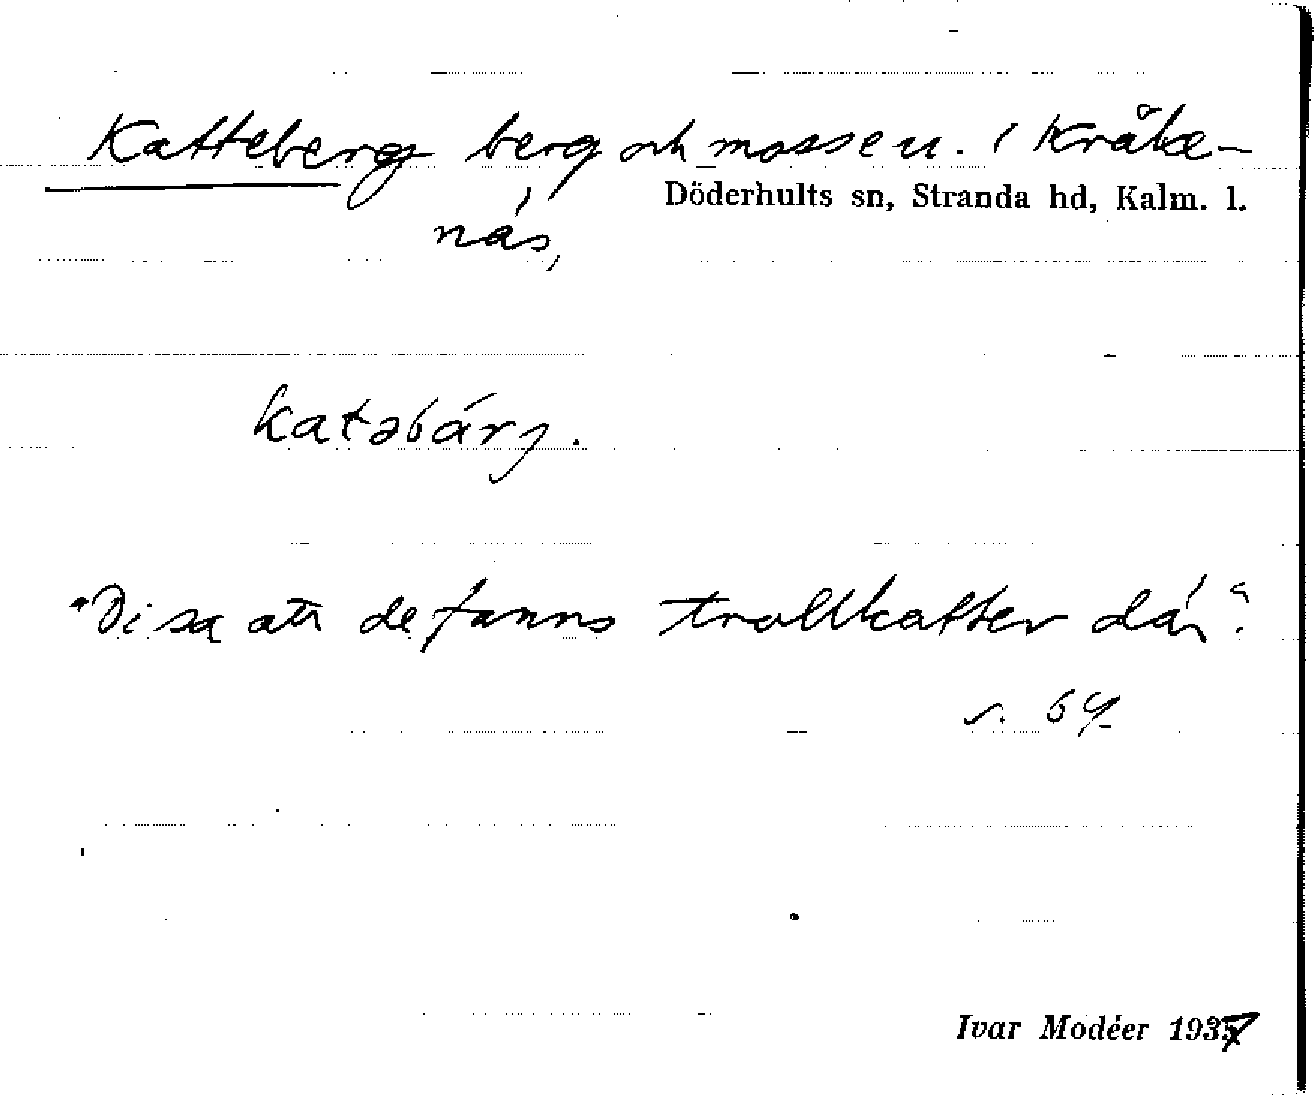 Katteberg berg och mosse u. i Kråke-
Döderhults sn, Stranda hd, Kalm. l.
näs,
katəbärj.
"Di sa att de fanns trollkatter där".
s. 64
Ivar Modéer 1937